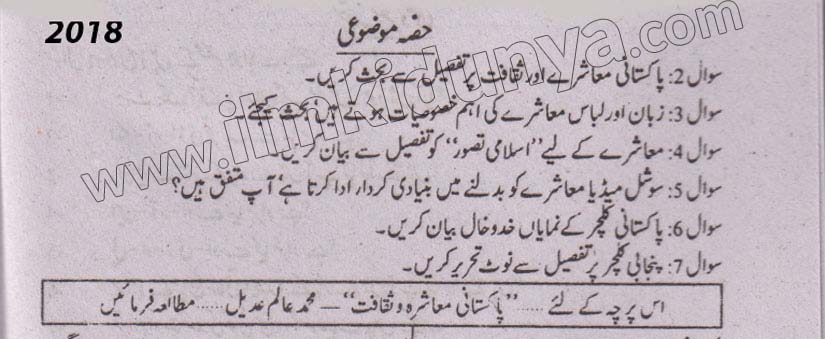 2018
حصہ موضوعی
سوال 2: پاکستانی معاشرے اور ثقافت پر تفصیل سے بحث کریں۔
سوال 3: زبان اور لباس معاشرے کی اہم خصوصیات ہوتے ہیں‘ بحث کیجئے۔
سوال 4: معاشرے کے لیے ’’اسلامی تصور‘‘ کو تفصیل سے بیان کریں۔
سوال 5: سوشل میڈیا معاشرے کو بدلنے میں بنیادی کردار ادا کرتا ہے‘ آپ متفق ہیں؟
سوال 6: پاکستانی کلچر کے نمایاں خدوخال بیان کریں۔
سوال 7: پنجابی کلچر پر تفصیل سے نوٹ تحریر کریں۔
اس پرچہ کے لئے ..... ’’پاکستانی معاشرہ و ثقافت‘‘ – محمد عالم عدیل ..... مطالعہ فرمائیں
www.ilmkidunya.com